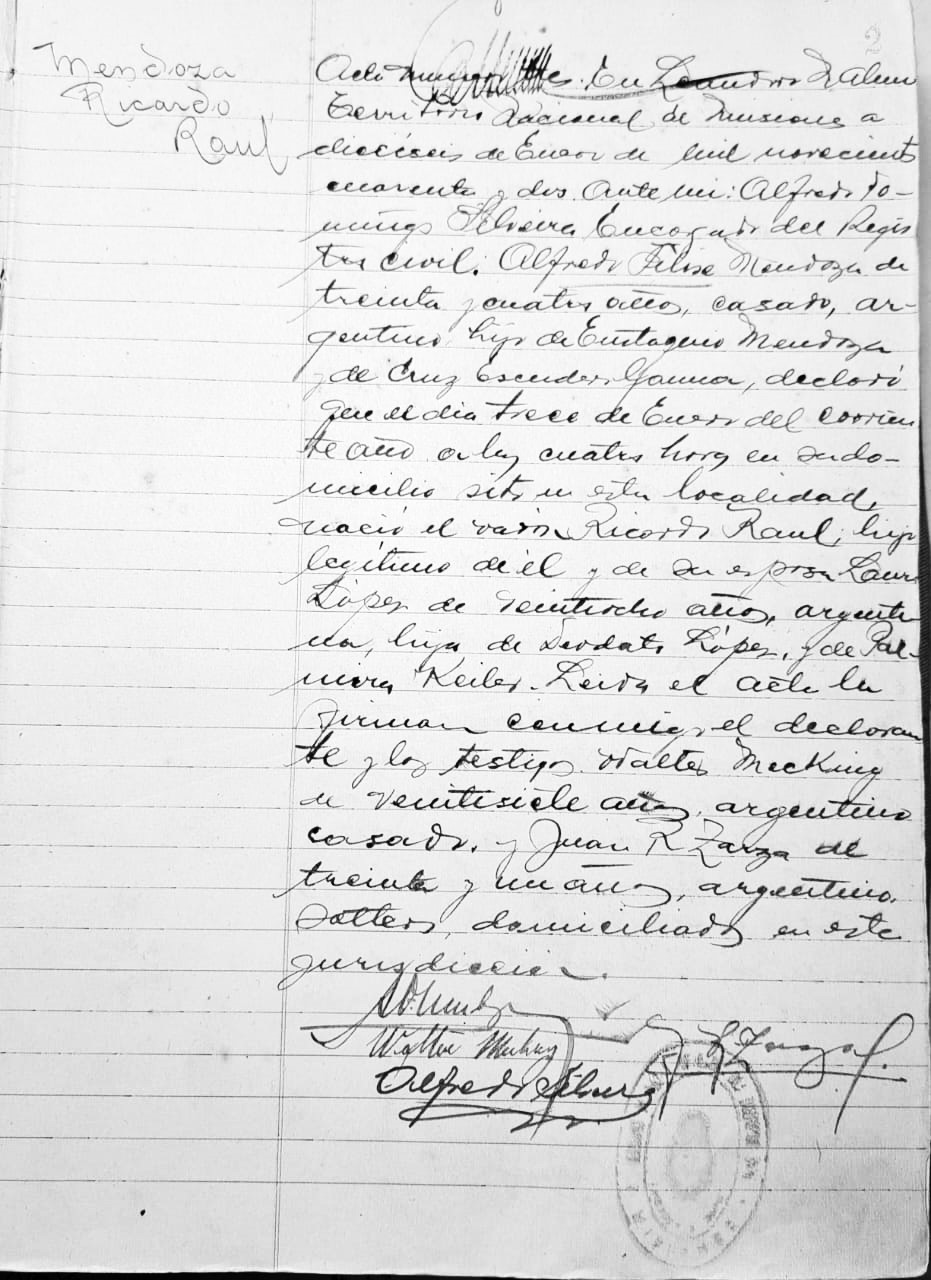 2
Mendoza
Ricardo
Raul
Acta numero tres. En Leandro N Alem
Territorio Nacional de Misiones a
dieciseis de Enero de mil novecientos
cuarenta y dos. Ante mi: Alfredo Do-
mingo Silveira Encargado del Regis
tro civil: Alfredo Mendoza de
treinta y cuatro años, casado, ar-
gentino hijo de Eustaquio Mendoza
y de Cruz Escudero Gauna, declaró
que el dia trece de Enero del corrien
te año a las cuatro horas en su do-
micilio sito en esta localidad,
nació el varón Ricardo Raul, hijo
legítimo de él y de su esposa Laura
López de veintiocho años, argenti
na, hija de Deodato López, y de Pal-
mira Keiler. Leida el acta la
firman conmigo el declaran
te y los testigos Walter MacKing
de veintisiete años, argentino
casado, y Juan R Zarza de
treinta y un años, argentino.
soltero, domiciliados en esta
jurisdiccion.